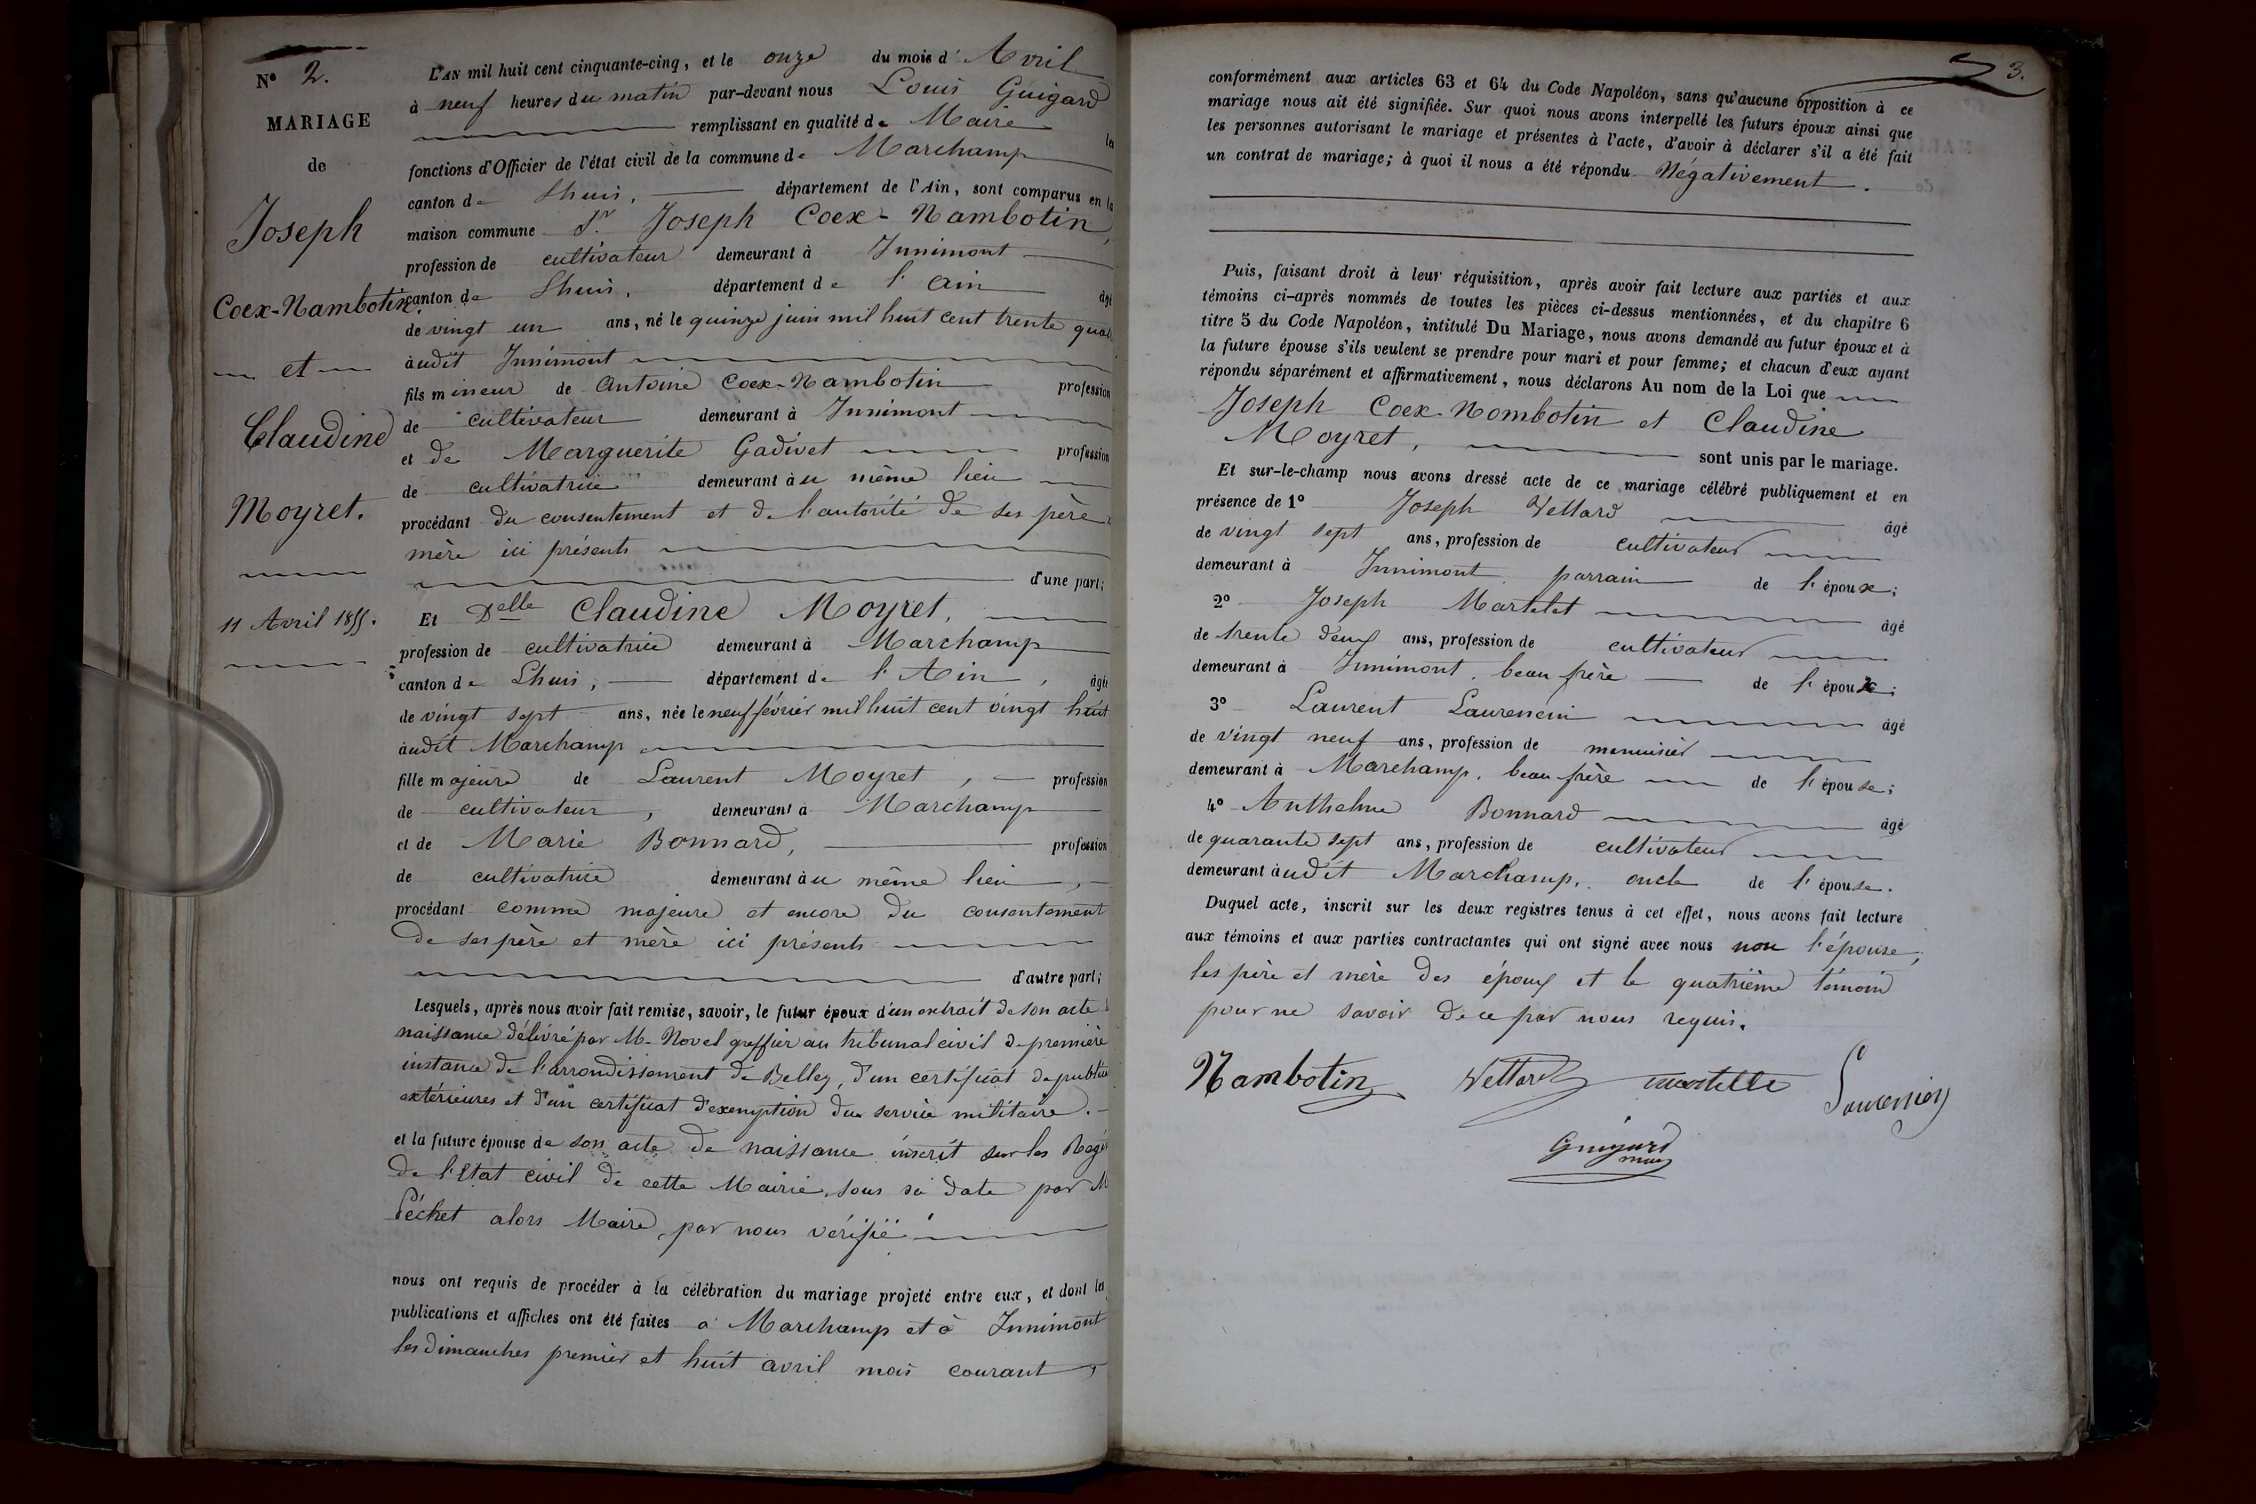 N° 2.
MARIAGE
de
Joseph
Coex-Nambotin.
et
Claudine
Moyret.
11 Avril 1855.
L'AN mil huit cent cinquante-cinq, et le onze du mois d' Avril
à neuf heures du matin par-devant nous Louis Guigard
remplissant en qualité de Maire les
fonctions d'Officier de l'état civil de la commune de Marchamp
canton de Lhuis, département de l'Ain, sont comparus en la
maison commune Sr. Joseph Coex-Nambotin,
profession de cultivateur demeurant à Innimont
canton de Lhuis, département de l'ain âgé
de vingt un ans, né le quinze juin mil huit cent trente quat
audit Innimont
fils mineur de Antoine Coex-Nambotin profession
de cultivateur demeurant à Innimont
et de Marguerite Gadivet profession
de cultivatrice demeurant au même lieu
procédant du consentement et de l'autorité de ses père
mère ici présents
d'une part;
Et Delle Claudine Moyret,
profession de cultivatrice demeurant à Marchamp
canton de Lhuis, département de l'Ain, âgée
de vingt sept ans, née le neuf février mil huit cent vingt huit
audit Marchamp
fille majeure de Laurent Moyret, profession
de cultivateur, demeurant à Marchamp
et de Marie Bonnard, profession
de cultivatrice demeurant au même lieu,
procédant comme majeure et encore du consentement
de ses père et mère ici présents
d'autre part;
Lesquels, après nous avoir fait remise, savoir, le futur époux d'un extrait de son acte
naissance délivré par M. Novel greffier au tribunal civil de première
instance de l'arrondissement de Belley, d'un certificat de public
extérieures et d'un certificat d'exemption du service militaire.
et la future épouse de son acte de naissance inscrit sur les Regi
de l'Etat civil de cette Mairie, sous sa date par M
Péchet alors Maire, par nous vérifié.
nous ont requis de procéder à la célébration du mariage projeté entre eux, et dont les
publications et affiches ont été faites à Marchamp et à Innimont
les dimanches premier et huit avril mois courant,
3.
conformément aux articles 63 et 64 du Code Napoléon, sans qu'aucune opposition à ce
mariage nous ait été signifiée. Sur quoi nous avons interpellé les futurs époux ainsi que
les personnes autorisant le mariage et présentes à l'acte, d'avoir à déclarer s'il a été fait
un contrat de mariage; à quoi il nous a été répondu Négativement.
Puis, faisant droit à leur réquisition, après avoir fait lecture aux parties et aux
témoins ci-après nommés de toutes les pièces ci-dessus mentionnées, et du chapitre 6
titre 5 du Code Napoléon, intitulé Du Mariage, nous avons demandé au futur époux et à
la future épouse s'ils veulent se prendre pour mari et pour femme; et chacun d'eux ayant
répondu séparément et affirmativement, nous déclarons Au nom de la Loi que
Joseph Coex-Nombotin et Claudine
Moyret, sont unis par le mariage.
Et sur-le-champ nous avons dressé acte de ce mariage célébré publiquement et en
présence de 1° Joseph Vettard âgé
de vingt sept ans, profession de cultivateur
demeurant à Innimont, parrain de l'époux;
2° Joseph Martelet âgé
de trente deux ans, profession de cultivateur
demeurant à Innimont, beau frère de l'époux;
3° Laurent Laurencin âgé
de vingt neuf ans, profession de menuisier
demeurant à Marchamp, beau frère de l'épouse;
4° Anthelme Bonnard âgé
de quarante sept ans, profession de cultivateur
demeurant audit Marchamp, oncle de l'épouse.
Duquel acte, inscrit sur les deux registres tenus à cet effet, nous avons fait lecture
aux témoins et aux parties contractantes qui ont signé avec nous non l'épouse,
les père et mère des époux et le quatrième témoin
pour ne savoir de ce par nous requis.
Nambotin Vettard martelle Laurensien
Guigard
maire